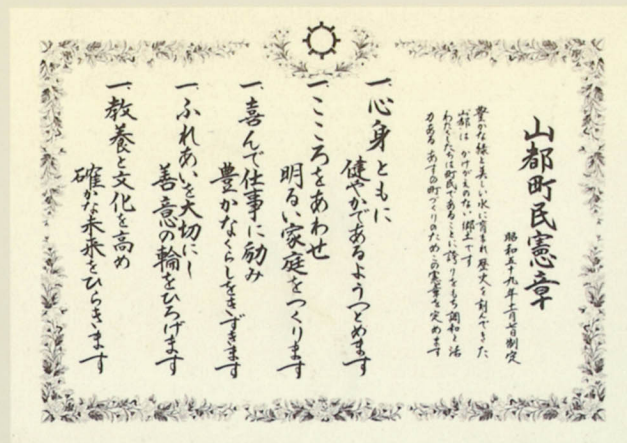 山都町民憲章
昭和五十九年七月一日制定
豊かな緑と美しい水に育まれ歴史を刻んできた
山都は かけがえのない郷土です
わたしたちは町民であることに誇りをもち調和と活
力ある あすの町づくりのためこの憲章を定めます
一、心身ともに
健やかであるようつとめます
一、こころをあわせ
明るい家庭をつくります
一、喜んで仕事に励み
豊かなくらしをきずきます
一、ふれあいを大切にし
善意の輪をひろげます
一、教養と文化を高め
確かな未来をひらきます